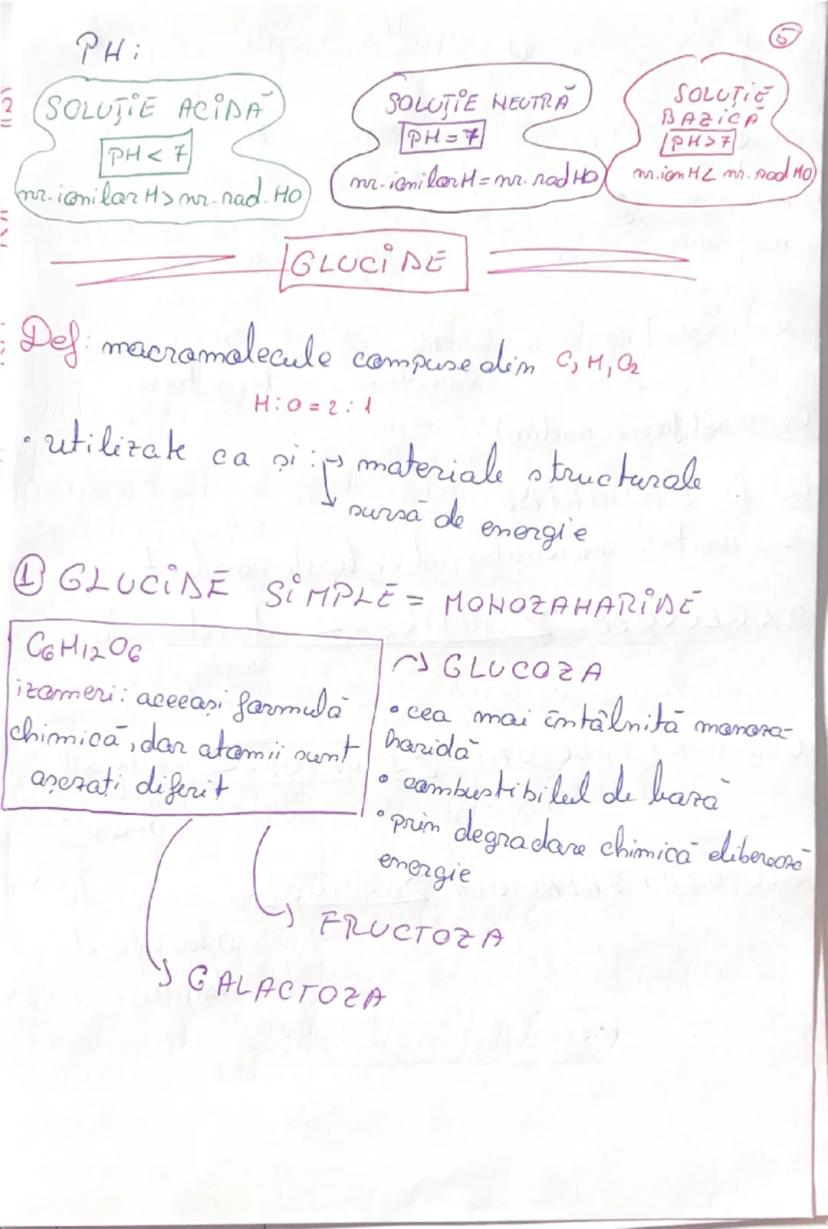 5
PH:
SOLUȚIE ACIDĂ
PH < 7
nr. ionilor H > nr. rad. HO
SOLUȚIE NEUTRĂ
PH = 7
nr. ionilor H = nr. rad HO
SOLUȚIE
BAZICĂ
PH > 7
nr. ion H < nr. rad HO
GLUCIDE
Def: macromolecule compuse din C, H, O2
H : O = 2 : 1
• utilizate ca și : → materiale structurale
→ sursă de energie
① GLUCIDE SIMPLE = MONOZAHARIDE
C6H12O6
izomeri: aceeași formulă
chimică, dar atomii sunt
așezati diferit
→ GLUCOZA
• cea mai întâlnită monoza-
haridă
• combustibilul de bază
• prin degradare chimică eliberează
energie
→ FRUCTOZA
→ GALACTOZA